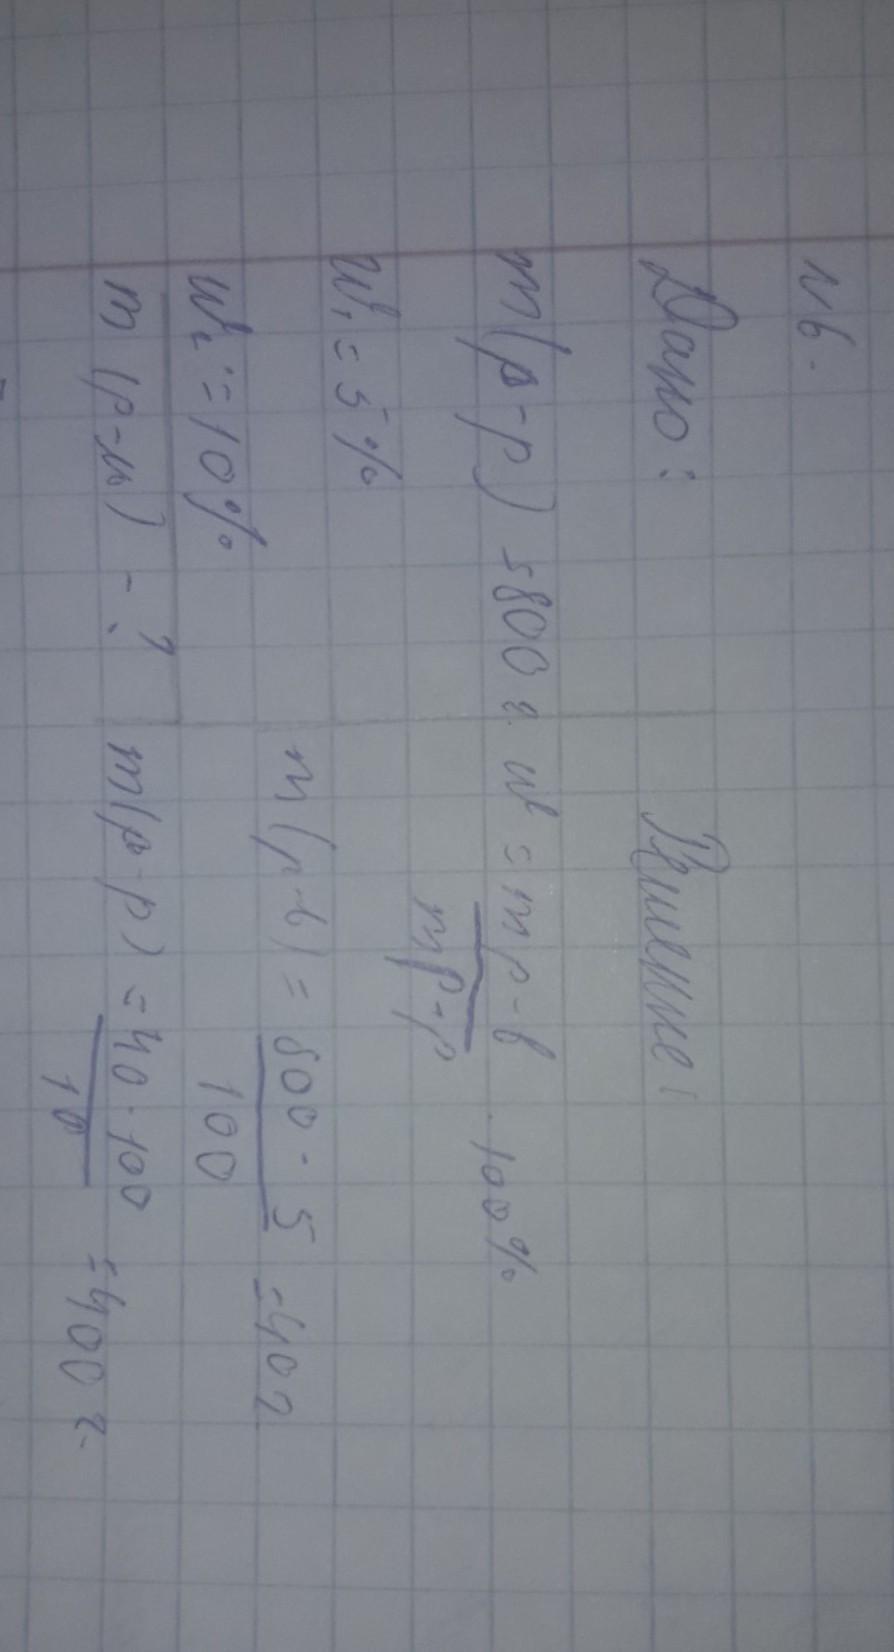 №6.
Дано:
m(р-р) = 800 г.
W₁ = 5%
W₂ = 10%
m (р-ра) - ?
Решение:
w = mр-в / mр-р · 100%
m(р-в) = 800 · 5 / 100 = 40г
m(р-р) = 40 · 100 / 10 = 400 г.